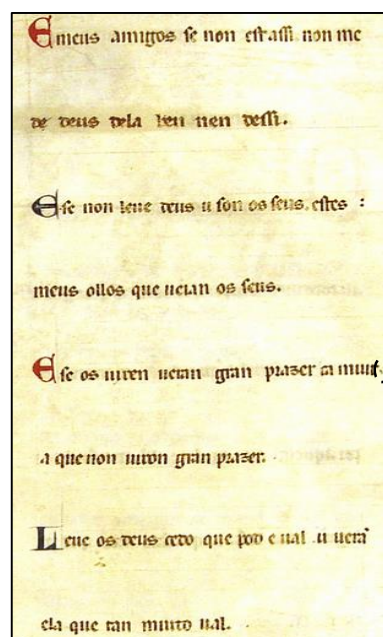 E meus amigos se non est assi non me
de deus dela ben nen dessi.
E se non leue deus u son os seus. estes :
meus ollos que ueian os seus.
E se os uiren ueran gran prazer ca muit
a que non uiron gran prazer.
Leue os deus cedo que pod e ual u uera
ela que tan muito ual.